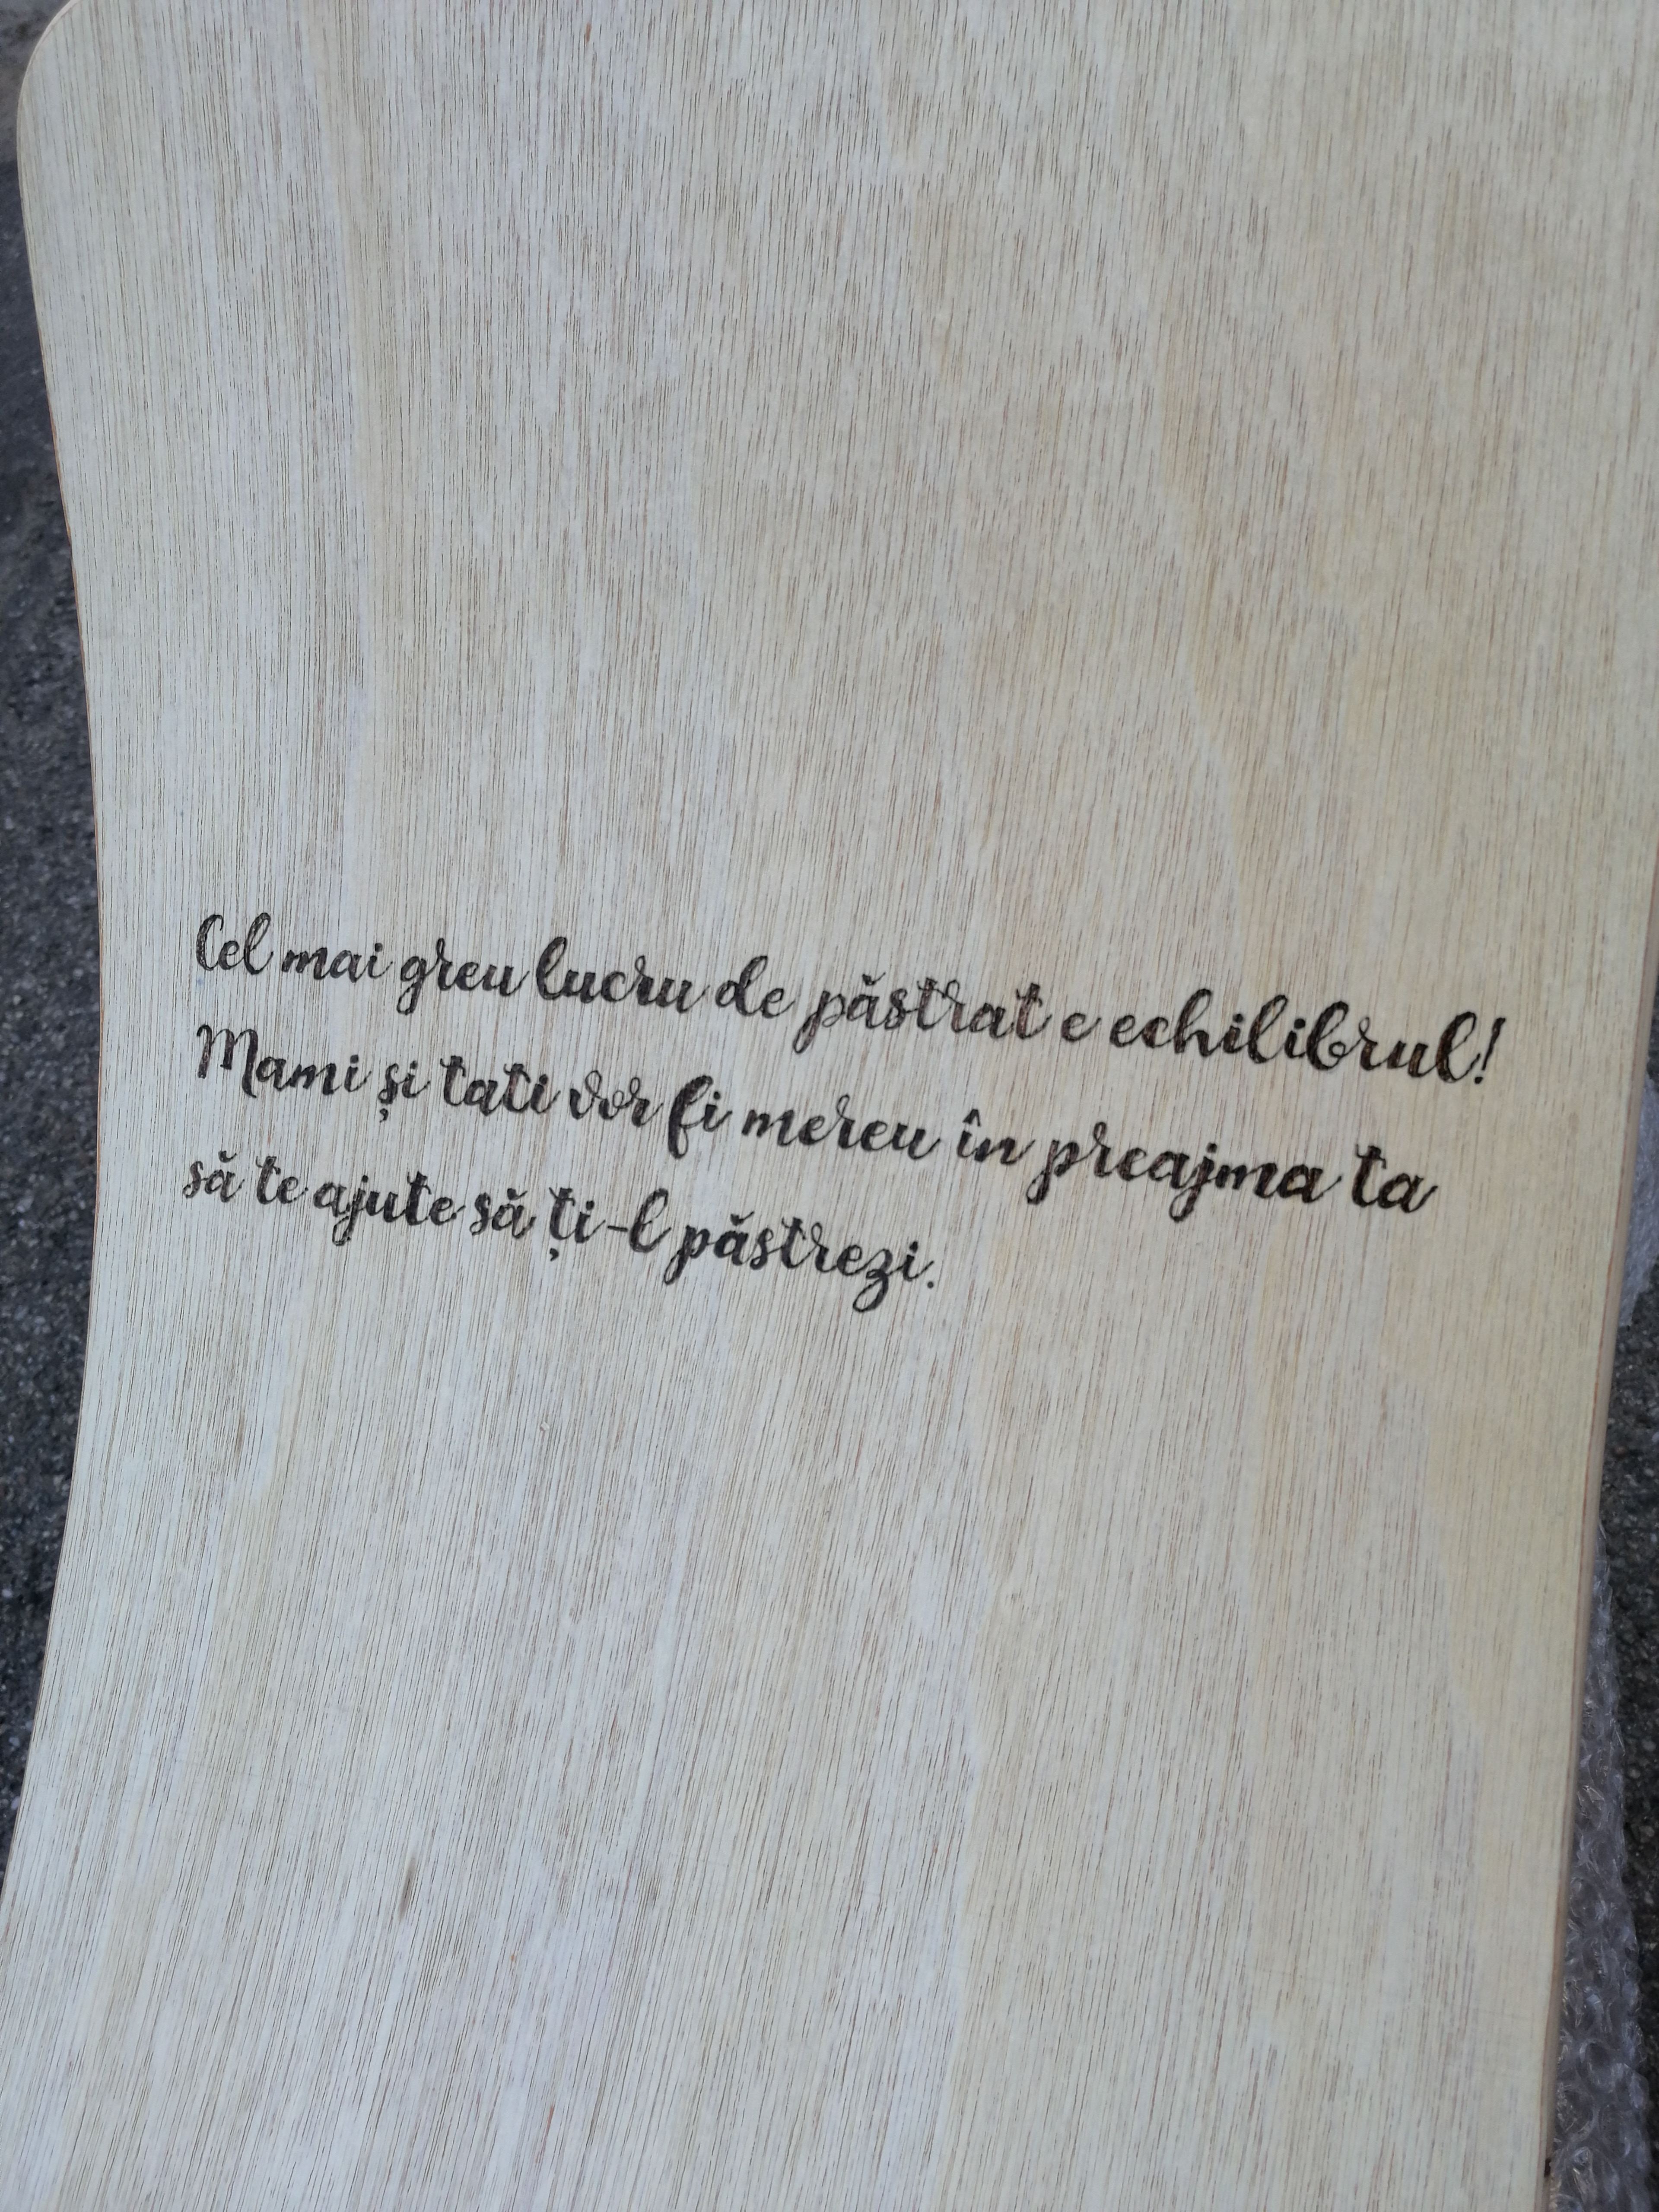 Cel mai greu lucru de păstrat e echilibrul!
Mami și tati vor fi mereu în preajma ta
să te ajute să ți-l păstrezi.